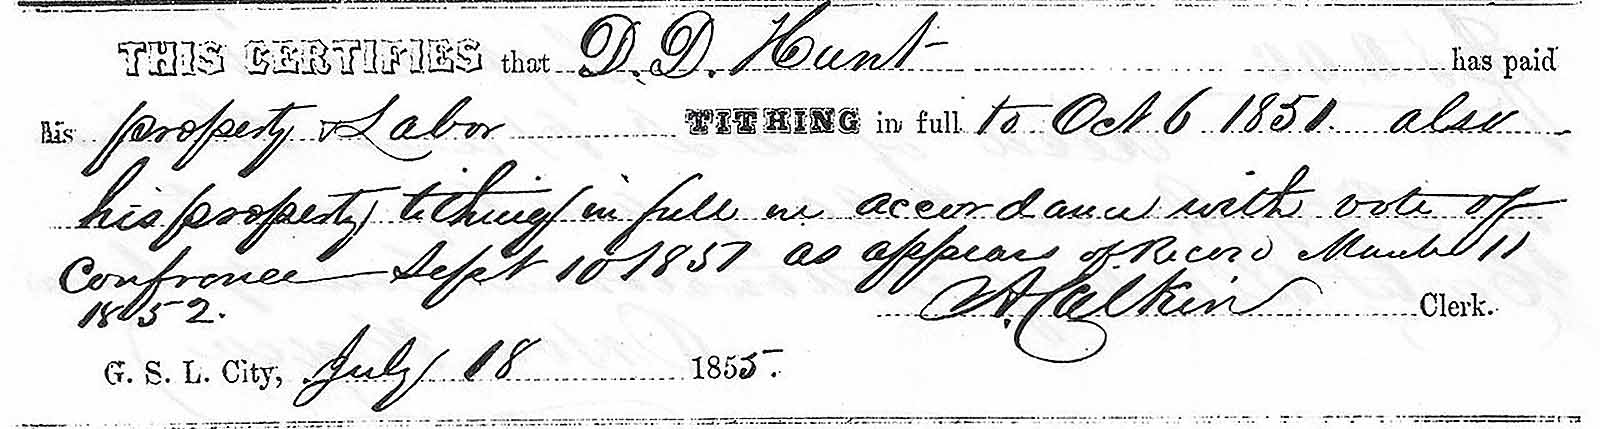 THIS CERTIFIES that D. D. Hunt has paid
his property & Labor TITHING in full to Oct 6 1851. also
his property tithing in full in accordance with vote of
Confrence Sept 10 1851 as appears of Record March 11
1852. A. Calkin Clerk.
G. S. L. City, July 18 1855.